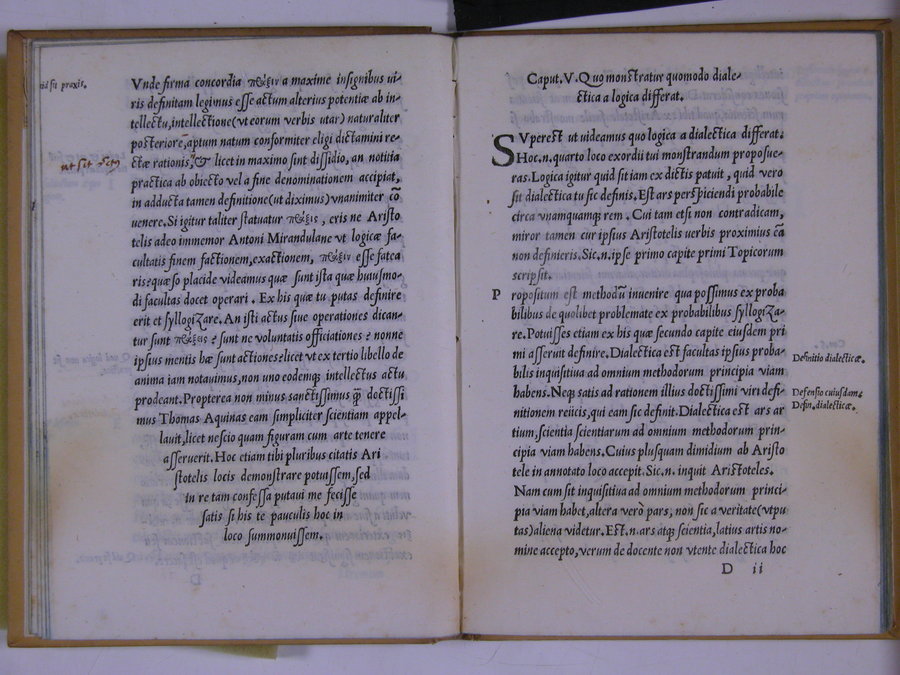 id sit praxis.
Vnde firma concordia πρᾶξιν a maxime insignibus ui-
ris definitam legimus esse actum alterius potentiæ ab in-
tellectu, intellectione (vt eorum verbis utar) naturaliter
posteriorē, aptum natum conformiter eligi dictamini re-
ctæ rationis, & licet in maximo sint dissidio, an notitia
practica ab obiecto vel a fine denominationem accipiat,
in adducta tamen definitione (ut diximus) vnanimiter cō
uenere. Si igitur taliter statuatur πρᾶξις, eris ne Aristo
telis adeo immemor Antoni Mirandulane vt logicæ fa-
cultatis finem factionem, exactionem, πρᾶξιν esse fatea
ris? quæso placide videamus quæ sunt ista quæ huiusmo-
di facultas docet operari. Ex his quæ tu putas definire
erit et syllogizare. An isti actus siue operationes dican-
tur sunt πρᾶξις? sunt ne voluntatis officiationes? nonne
ipsius mentis hæ sunt actiones? licet vt ex tertio libello de
anima iam notauimus, non uno eodemq; intellectus actu
prodeant. Propterea non minus sanctissimus q̄ doctissi
mus Thomas Aquinas eam simpliciter scientiam appel-
lauit, licet nescio quam figuram cum arte tenere
asseruerit. Hoc etiam tibi pluribus citatis Ari
stotelis locis demonstrare potuissem, sed
in re tam confessa putaui me fecisse
satis si his te pauculis hoc in
loco summonuissem.
Caput. V. Quo monstratur quomodo diale-
ctica a logica differat.
SVperest ut uideamus quo logica a dialectica differat.
Hoc. n. quarto loco exordii tui monstrandum proposue-
ras. Logica igitur quid sit iam ex dictis patuit, quid vero
sit dialectica tu sic definis. Est ars perspiciendi probabile
circa vnamquamq; rem. Cui tam etsi non contradicam,
miror tamen cur ipsius Aristotelis uerbis proximius eā
non definieris. Sic. n. ipse primo capite primi Topicorum
scripsit.
Propositum est methodū inuenire qua possimus ex proba
bilibus de quolibet problemate ex probabilibus syllogiza-
re. Potuisses etiam ex his quæ secundo capite eiusdem pri
mi asseruit definire. Dialectica est facultas ipsius proba-
bilis inquisitiua ad omnium methodorum principia viam
habens. Neq; satis ad rationem illius doctissimi viri defi-
nitionem reiicis, qui eam sic definit. Dialectica est ars ar
tium, scientia scientiarum ad omnium methodorum prin-
cipia viam habens. Cuius plusquam dimidium ab Aristo
tele in annotato loco accepit. Sic. n. inquit Aristoteles.
Nam cum sit inquisitiua ad omnium methodorum princi-
pia viam habet, altera vero pars, non sic a veritate (vtpu
tas) aliena videtur. Est. n. ars atq; scientia, latius artis no-
mine accepto, verum de docente non vtente dialectica hoc
D ii
Definitio dialecticæ.
Defensio cuiusdam
Defin. dialecticæ.